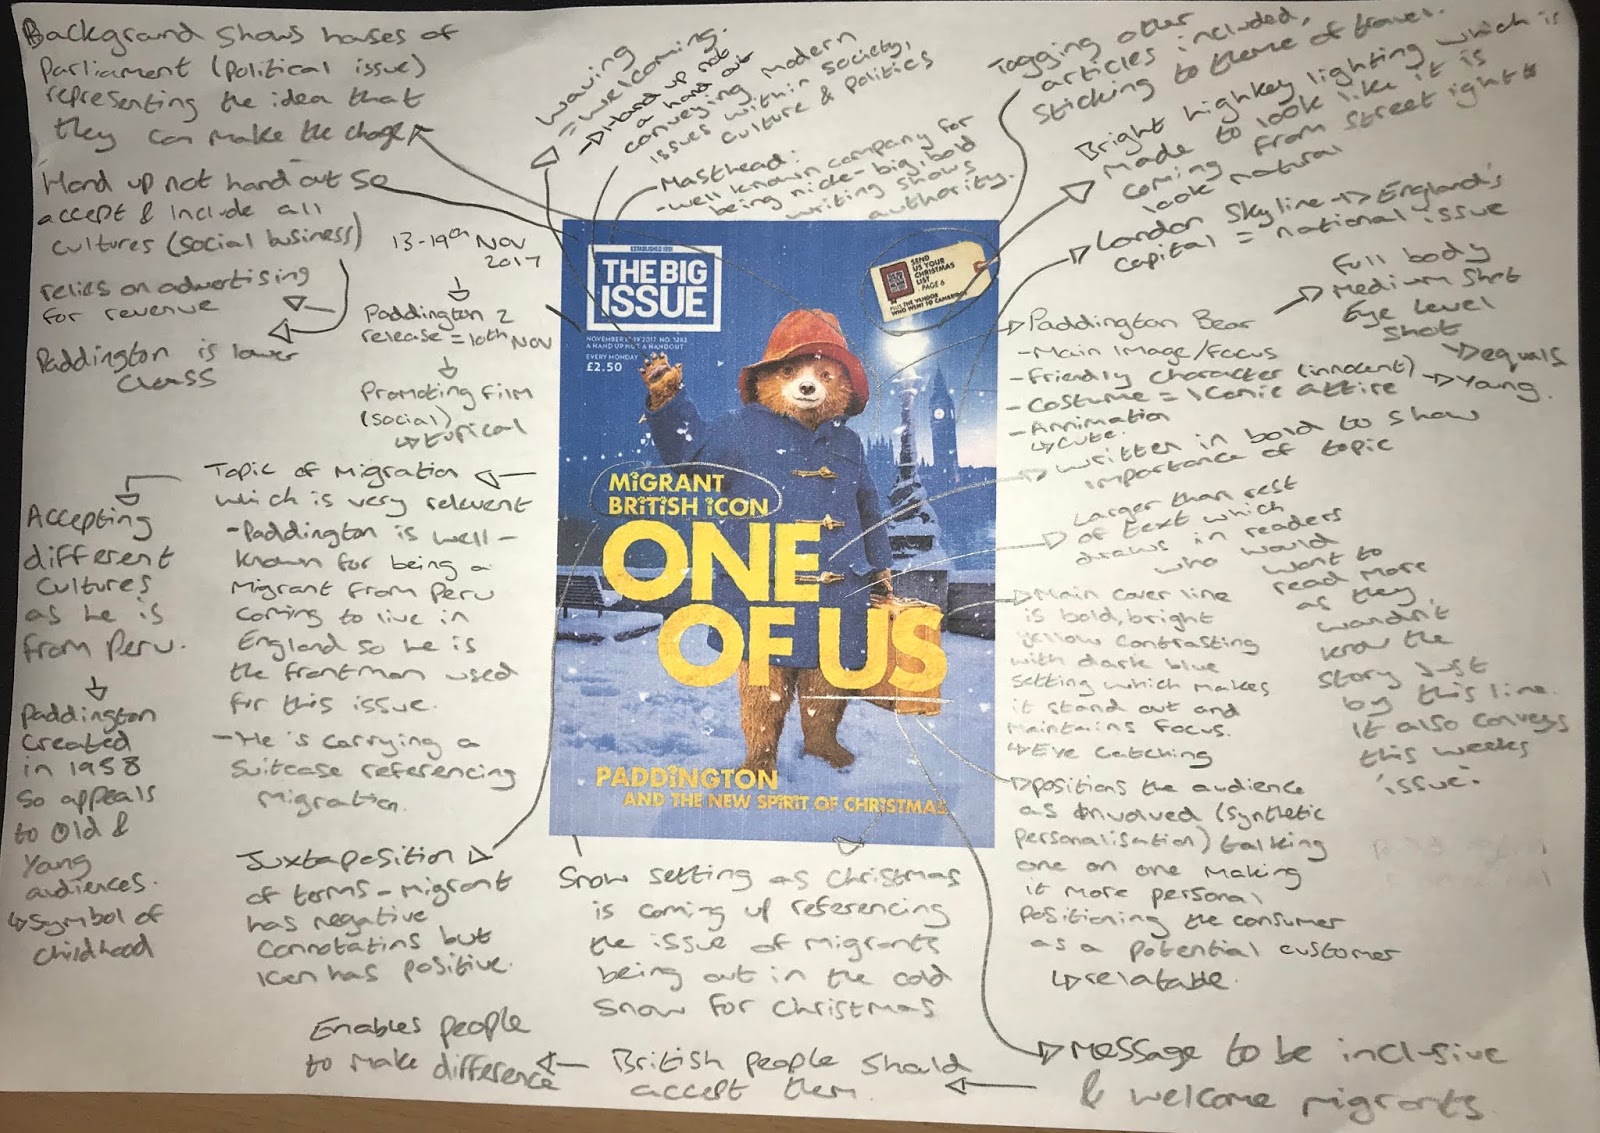 Background shows houses of
Parliament (political issue)
representing the idea that
they can make the change
Hand up not hand out so
accept & include all
cultures (social business)
relies on advertising
for revenue
Paddington is lower
class
13-19th Nov
2017
Paddington 2
release = 10th Nov
Promoting film
(social)
↳ topical
Topic of Migration
which is very relevent
- Paddington is well-
known for being a
Migrant from Peru
coming to live in
England so he is
the frontman used
for this issue.
- He is carrying a
suitcase referencing
migration.
Accepting
different
cultures
as he is
from Peru.
Paddington
created
in 1958
so appeals
to old &
Young
audiences.
↳ symbol of
childhood
Juxtaposition
of terms - migrant
has negative
connotatins but
Icon has positive.
waving
= welcoming.
→ Hand up not
a hand out
conveying modern
issues within society,
culture & politics
Masthead:
- well known company for
being nice - big, bold
writing shows
authority.
Togging other
articles included,
sticking to theme of travel.
Bright highkey lighting which is
made to look like it is
coming from street light
look natural
London Skyline → England's
capital = national issue
Full body
Medium shot
Eye Level
shot
↳ equals
→ Young.
Paddington Bear
- Main Image/Focus
- Friendly character (innocent)
- Costume = Iconic attire
- Annimation
↳ cute.
written in bold to show
importance of topic
Larger than rest
of text which
draws in readers
who would
want to
read more
as they
wouldn't
know the
story just
by this line.
It also conveys
this weeks
'issue'.
Main cover line
is bold, bright
yellow contrasting
with dark blue
setting which makes
it stand out and
maintains focus.
↳ Eye catching
positions the audience
as involved (synthetic
personalisation) talking
one on one making
it more personal
positioning the consumer
as a potential customer
↳ relatable.
ESTABLISHED 1991
THE BIG
ISSUE
A HAND UP NOT A HANDOUT
EVERY MONDAY
£2.50
SEND
US YOUR
CHRISTMAS
LIST
PAGE 6
PLUS THE VENDOR
WHO WENT TO CAMBRIDGE
MIGRANT
BRITISH ICON
ONE
OF US
PADDINGTON
AND THE NEW SPIRIT OF CHRISTMAS
Snow setting as Christmas
is coming up referencing
the issue of migrants
being out in the cold
snow for Christmas
Message to be inclusive
& welcome migrants.
British people should
accept them.
Enables people
to make difference